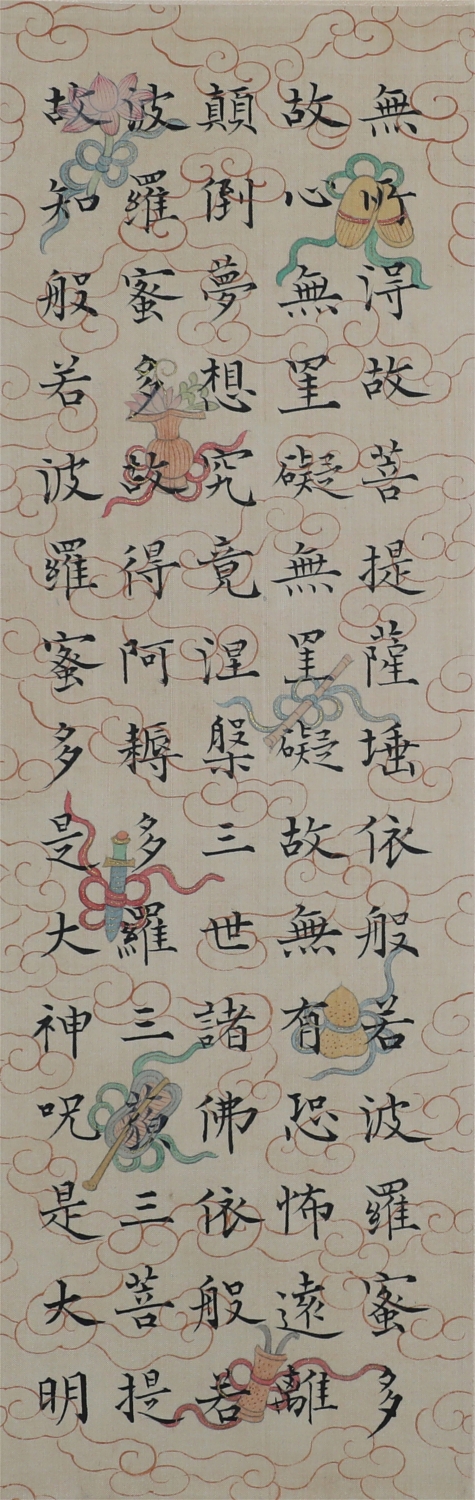 無所得故菩提薩埵依般若波羅蜜多
故心無罣礙無罣礙故無有恐怖遠離
顛倒夢想究竟涅槃三世諸佛依般若
波羅蜜多故得阿耨多羅三藐三菩提
故知般若波羅蜜多是大神呪是大明